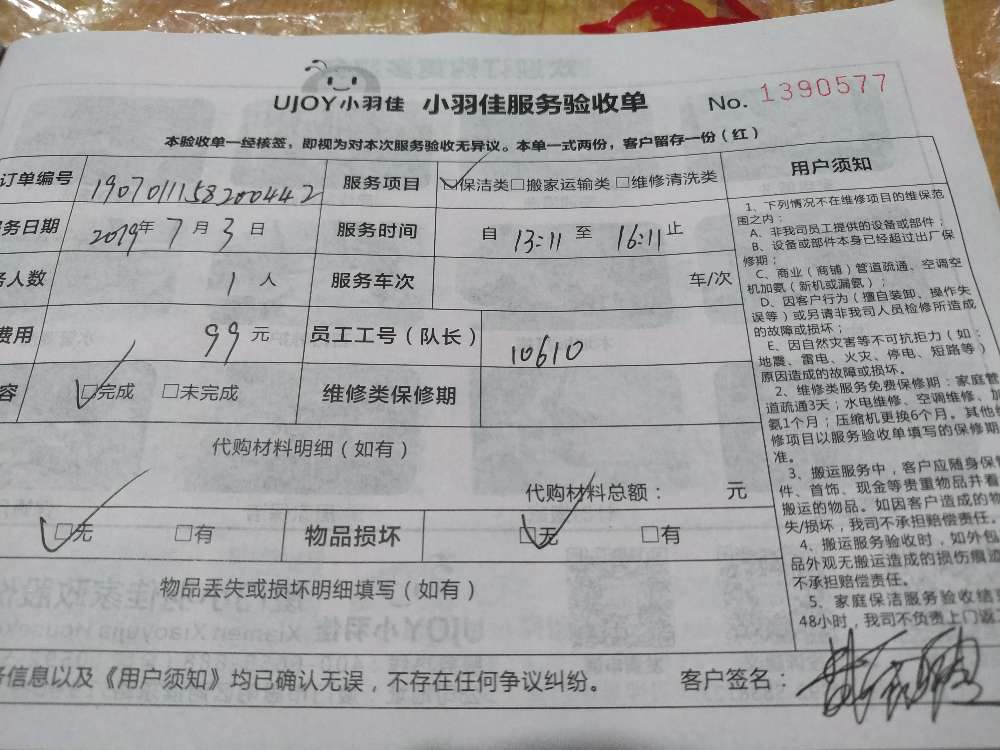 UJOY小羽佳 小羽佳服务验收单 No. 1390577
本验收单一经核签，即视为对本次服务验收无异议。本单一式两份，客户留存一份（红）
订单编号 1907011158200442 服务项目 保洁类 □搬家运输类 □维修清洗类
务日期 2019年 7月 3日 服务时间 自 13:11 至 16:11 止
人数 1 人 服务车次 车/次
费用 99 元 员工工号（队长） 10610
容 □完成 □未完成 维修类保修期
代购材料明细（如有）
代购材料总额： 元
□无 □有 物品损坏 □无 □有
物品丢失或损坏明细填写（如有）
信息以及《用户须知》均已确认无误，不存在任何争议纠纷。 客户签名：
用户须知
1、下列情况不在维修项目的维保范
围之内：
A、非我司员工提供的设备或部件；
B、设备或部件本身已经超过出厂保
修期；
C、商业（商铺）管道疏通、空调空
机加氨（新机或漏氨）；
D、因客户行为（擅自装卸、操作失
误等）或另请非我司人员检修所造成
的故障或损坏；
E、因自然灾害等不可抗拒力（如：
地震、雷电、火灾、停电、短路等）
原因造成的故障或损坏。
2、维修类服务免费保修期：家庭管
道疏通3天；水电维修、空调维修、加
氨1个月；压缩机更换6个月。其他
修项目以服务验收单填写的保修期
准。
3、搬运服务中，客户应随身保管
件、首饰、现金等贵重物品并看
搬运的物品。如因客户造成的物
失/损坏，我司不承担赔偿责任。
4、搬运服务验收时，如外包
品外观无搬运造成的损伤痕迹
不承担赔偿责任。
5、家庭保洁服务验收结
48小时，我司不负责上门返